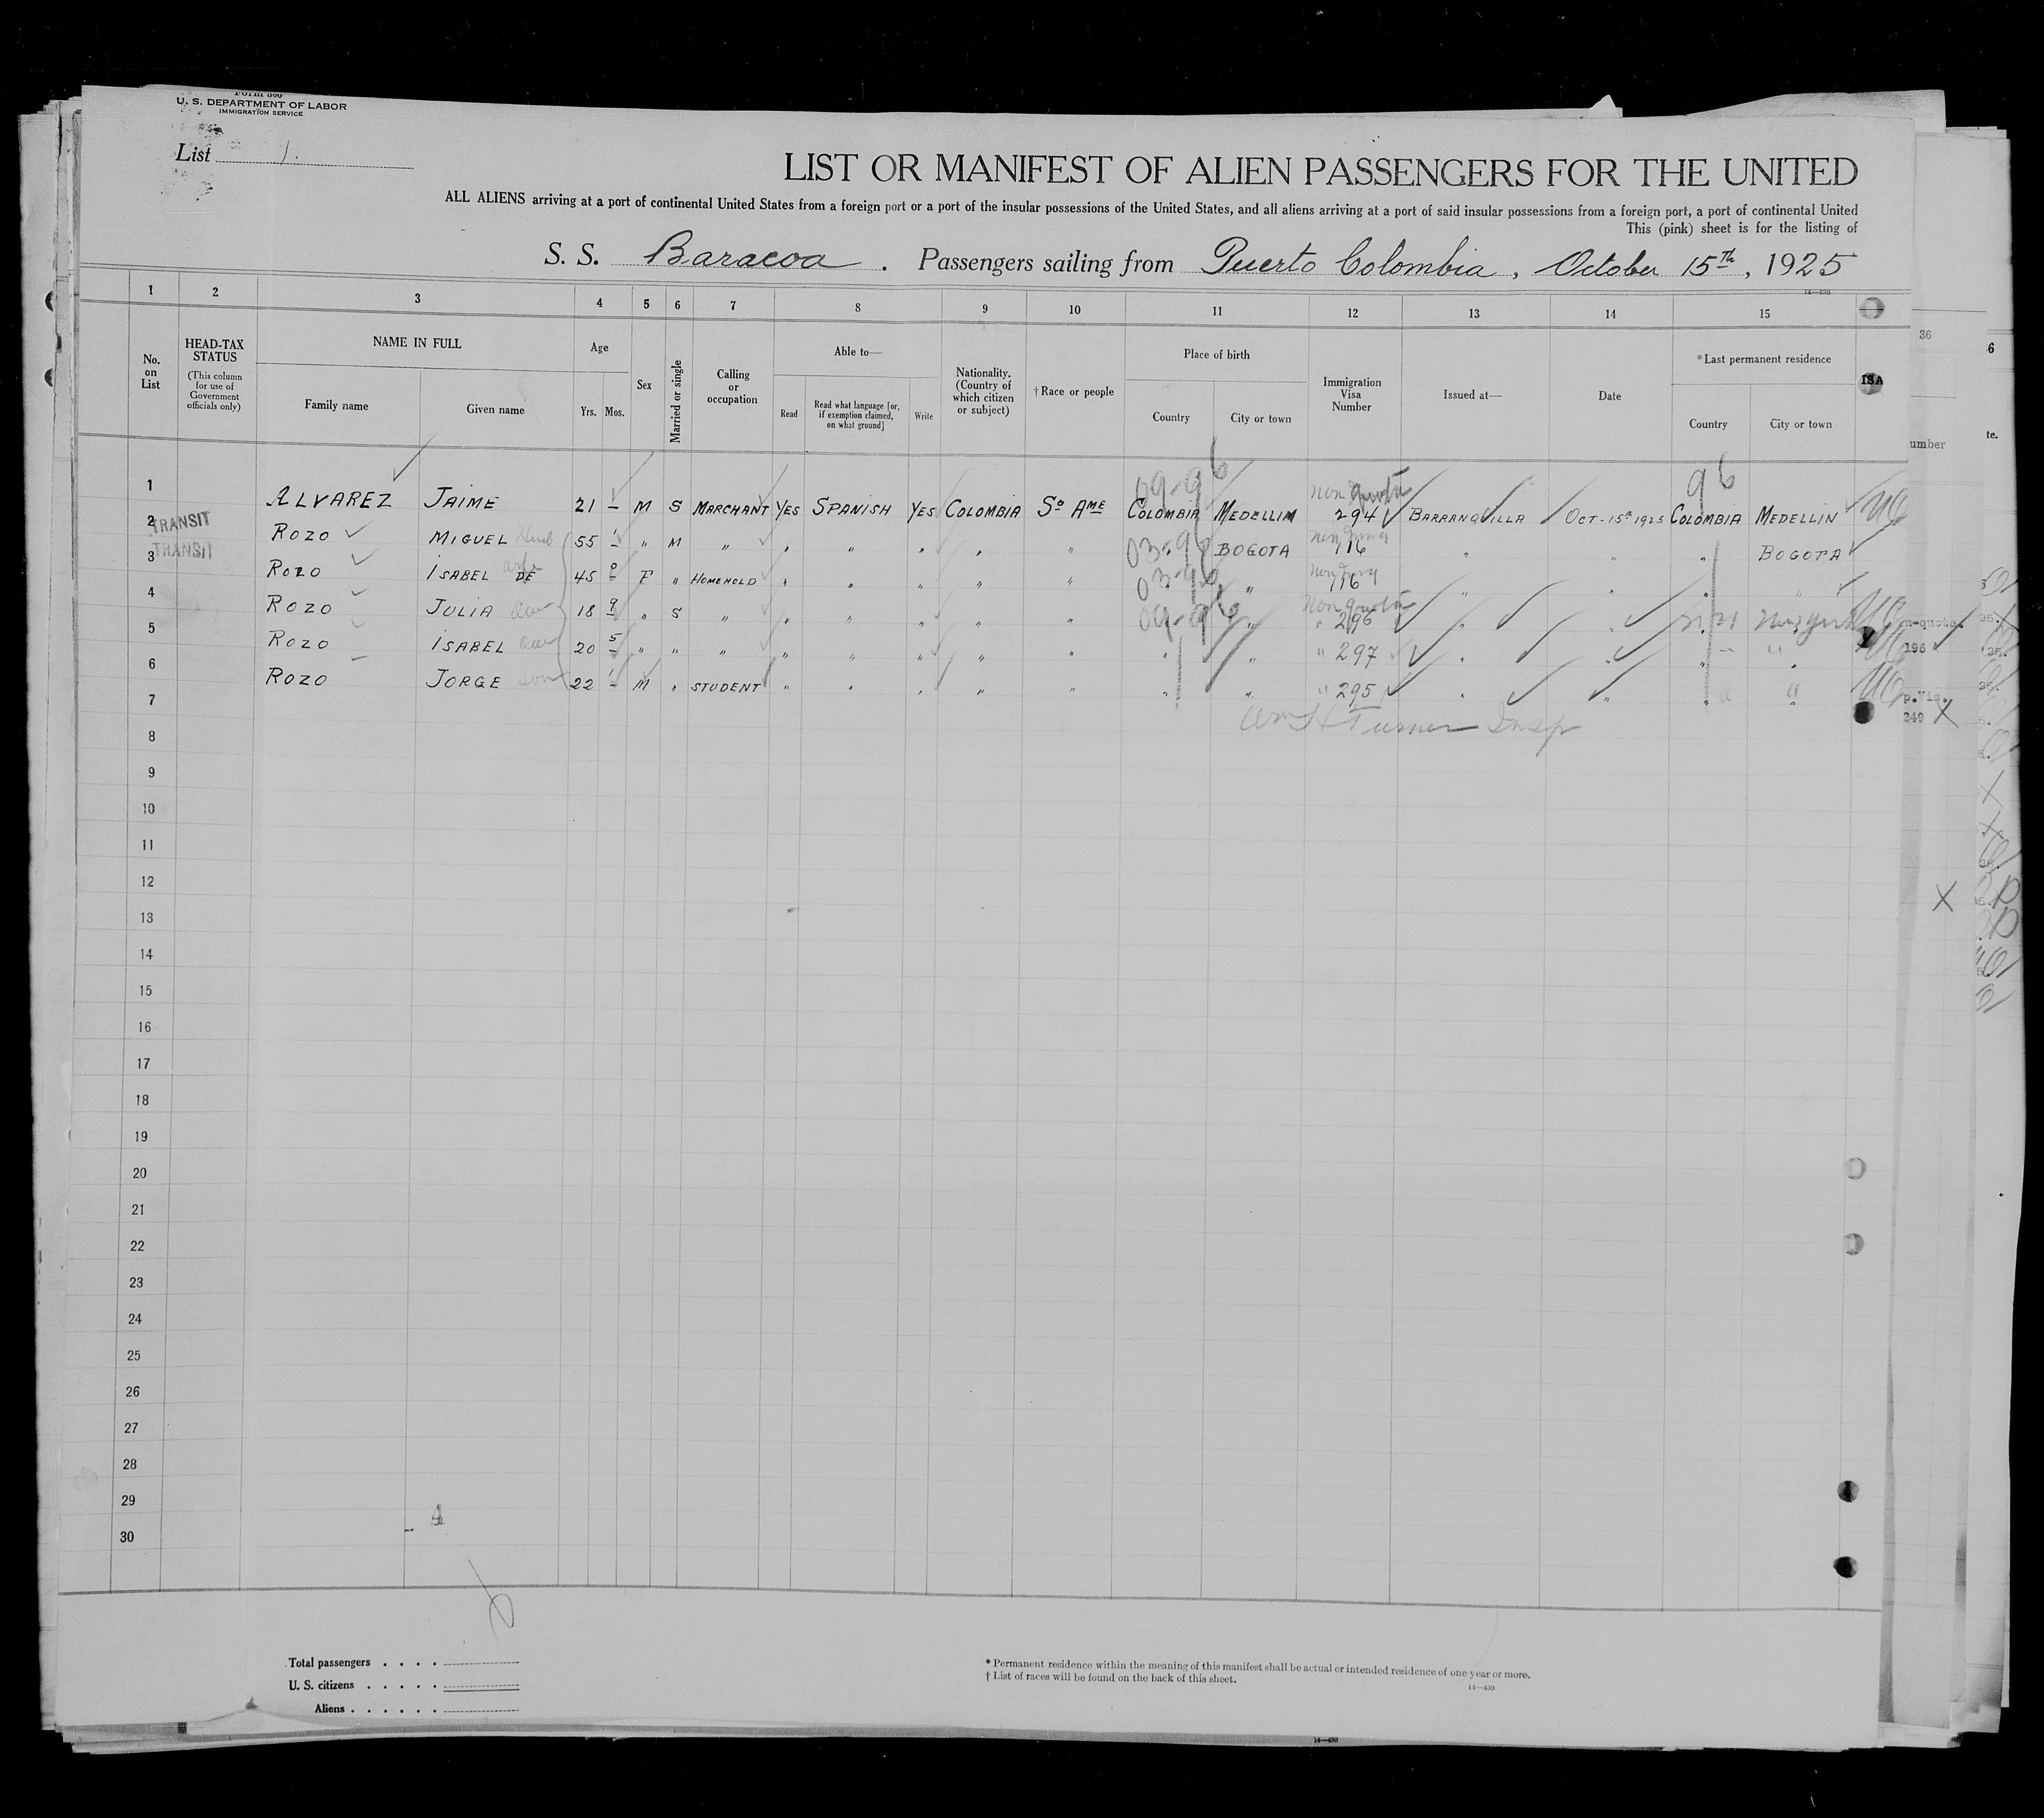 Form 500
U. S. DEPARTMENT OF LABOR
IMMIGRATION SERVICE
List 1.
LIST OR MANIFEST OF ALIEN PASSENGERS FOR THE UNITED
ALL ALIENS arriving at a port of continental United States from a foreign port or a port of the insular possessions of the United States, and all aliens arriving at a port of said insular possessions from a foreign port, a port of continental United
This (pink) sheet is for the listing of
S. S. Baracoa . Passengers sailing from Puerto Colombia, October 15th, 1925
14—430
1 2 3 4 5 6 7 8 9 10 11 12 13 14 15
No. on List
HEAD-TAX STATUS
(This column for use of Government officials only)
NAME IN FULL
Family name
Given name
Age
Yrs. Mos.
Sex
Married or single
Calling or occupation
Able to—
Read
Read what language [or, if exemption claimed, on what ground]
Write
Nationality. (Country of which citizen or subject)
† Race or people
Place of birth
Country
City or town
Immigration Visa Number
Issued at—
Date
* Last permanent residence
Country
City or town
ISA
36
6
umber
te.
09-96 Non quota 96
1 ALVAREZ JAIME 21 – M S MARCHANT YES SPANISH YES COLOMBIA So AME COLOMBIA MEDELLIN 294 BARRANQUILLA OCT-15th 1925 COLOMBIA MEDELLIN
2 TRANSIT ROZO MIGUEL 55 1 " M " " " " " " 03-96 BOGOTA 116 " " " BOGOTA
3 TRANSIT ROZO ISABEL DE wife 45 0 F " HOMEHOLD " " " " " 03-96 " 116 " " " "
4 ROZO JULIA 18 9 " S " " " " " " 09-96 " Non quota 296 " " New York
5 ROZO ISABEL 20 5 " " " " " " " " " " " 297 " " " "
6 ROZO JORGE son 22 1 M " STUDENT " " " " " " " " 295 " " " "
Wm H Turner Insp
n-quota.
196
p.Vis.
249 X
7
8
9
10
11
12
X
13
14
15
16
17
18
19
20
21
22
23
24
25
26
27
28
29
30
Total passengers . . . .
U. S. citizens . . . . .
Aliens . . . . . .
* Permanent residence within the meaning of this manifest shall be actual or intended residence of one year or more.
† List of races will be found on the back of this sheet.
14—430
14—430